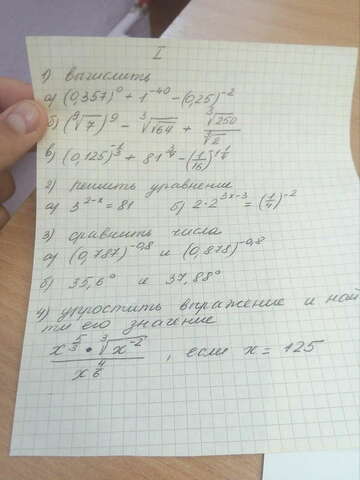 I
1) вычислить
а) (0,357)⁰ + 1⁻⁴⁰ - (0,25)⁻²
б) (³√7)⁹ - ³√164 + ³√250 / ³√2
в) (0,125)^(-1/3) + 81^(3/4) - (1/16)^(1 1/4)
2) решить уравнение
а) 3^(2-x) = 81 б) 2·2^(3x-3) = (1/4)⁻²
3) сравнить числа
а) (0,787)^(-0,8) и (0,878)^(-0,8)
б) 35,6° и 37,88°
4) упростить выражение и най
ти его значение
x^(5/3) · ³√x⁻² / x^(4/6) , если x = 125